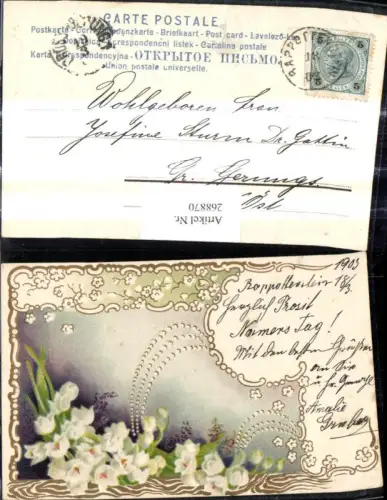 CARTE POSTALE
Postkarte - Correspondenzkarte - Briefkaart - Post card - Levelező-L
Dopisnica - Correspondenční listek - Cartolina postale
Karta korespondencyjna - ОТКРЫТОЕ ПИСЬМО
Union postale universelle.
RAPPOTTENST
5 5
Wohlgeboren Frau
Josefine Sturm Dr. Gattin
Gr. Gerungs
Öst.
Artikel Nr.
268870
1903
Rappottenstein 18/3
Herzlich Prosit
Namens Tag!
Mit den besten Grüßen
an Sie
u Hr. Gemahl
Amalie